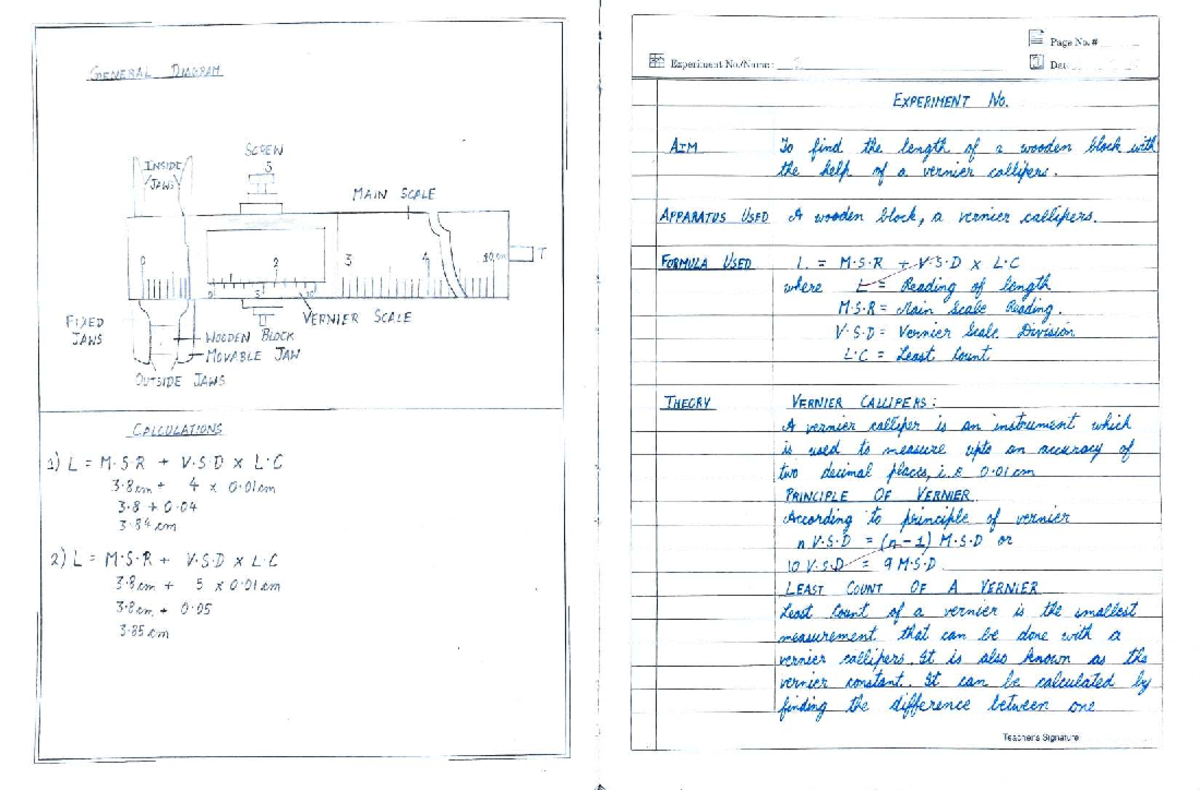 GENERAL DIAGRAM
SCREW
S
INSIDE
JAWS
MAIN SCALE
0
2
3
4
10 cm
T
0
5
10
VERNIER SCALE
FIXED
JAWS
WOODEN BLOCK
MOVABLE JAW
OUTSIDE JAWS
CALCULATIONS
1) L = M.S.R + V.S.D x L.C
3.8cm + 4 x 0.01cm
3.8 + 0.04
3.84 cm
2) L = M.S.R + V.S.D x L.C
3.8cm + 5 x 0.01 cm
3.8cm + 0.05
3.85 cm
Page No.#
Experiment No./Name:
Date
EXPERIMENT No.
AIM To find the length of a wooden block with
the help of a vernier callipers.
APPARATUS USED A wooden block, a vernier callipers.
FORMULA USED L = M.S.R + V.S.D x L.C
where L = Reading of length
M.S.R = Main Scale Reading.
V.S.D = Vernier Scale Division
L.C = Least Count
THEORY VERNIER CALLIPERS:
A vernier calliper is an instrument which
is used to measure upto an accuracy of
two decimal places, i.e 0.01 cm
PRINCIPLE OF VERNIER
According to principle of vernier
n V.S.D = (n-1) M.S.D or
10 V.S.D = 9 M.S.D.
LEAST COUNT OF A VERNIER
Least Count of a vernier is the smallest
measurement that can be done with a
vernier callipers. It is also known as the
vernier constant. It can be calculated by
finding the difference between one
Teacher's Signature